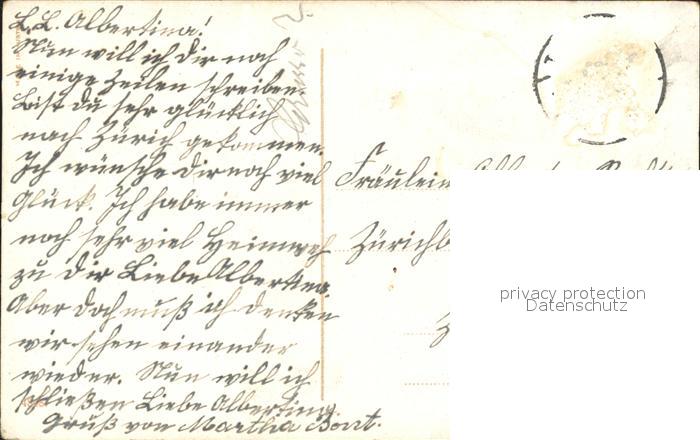 L. L. Albertina!
Nun will ich dir noch
einige Zeilen schreiben.
bist du sehr glücklich
nach Zürich gekommen.
Ich wünsche dir noch viel
Glück. Ich habe immer
noch sehr viel Heimweh
zu dir Liebe Albertina
Aber doch muß ich denken
wir sehen einander
wieder. Nun will ich
schließen Liebe Albertina.
Gruß von Martha Bont.
Fräulein
Zürichb
privacy protection
Datenschutz